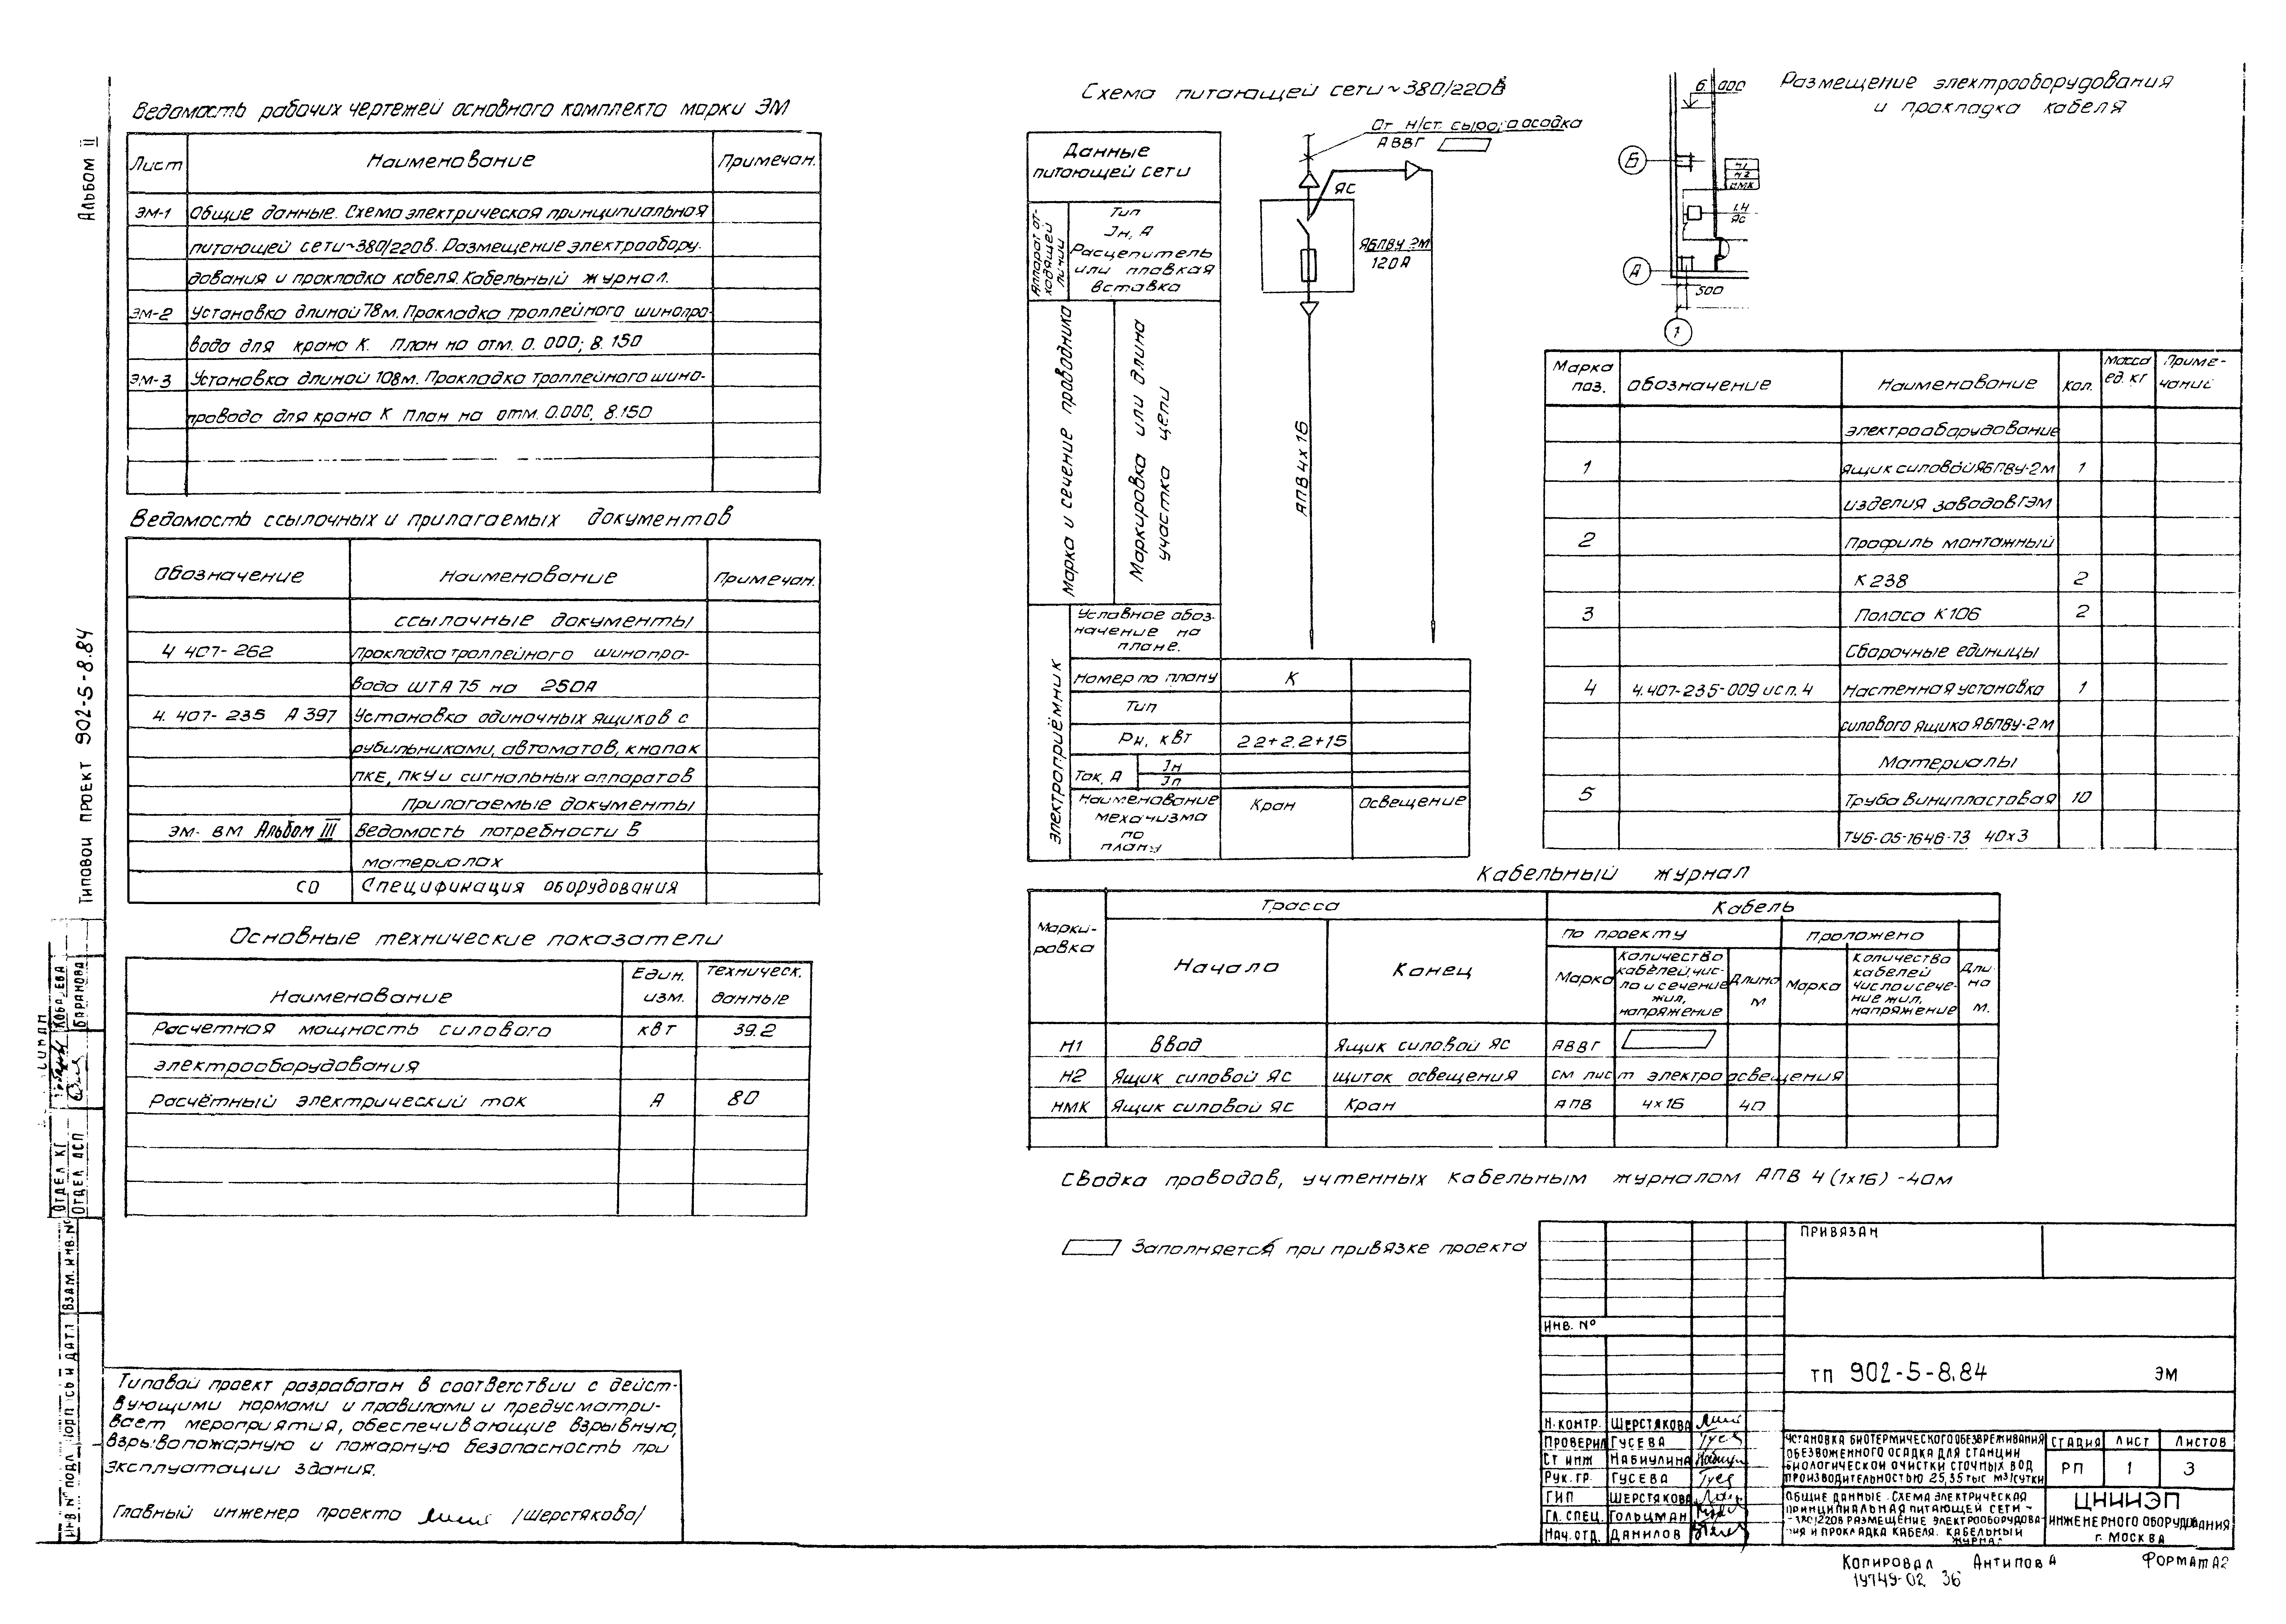 Альбом II
Типовой проект 902-5-8.84
Ведомость рабочих чертежей основного комплекта марки ЭМ
Лист Наименование Примечан.
ЭМ-1 Общие данные. Схема электрическая принципиальная
питающей сети ~380/220в. Размещение электрообору-
дования и прокладка кабеля. Кабельный журнал.
ЭМ-2 Установка длиной 78м. Прокладка троллейного шинопро-
вода для крана К. План на отм. 0.000; 8.150
ЭМ-3 Установка длиной 108м. Прокладка троллейного шино-
провода для крана К План на отм. 0.000, 8.150
Ведомость ссылочных и прилагаемых документов
Обозначение Наименование Примечан.
ссылочные документы
4 407-262 Прокладка троллейного шинопро-
вода ШТА 75 на 250А
4. 407-235 А 397 Установка одиночных ящиков с
рубильниками, автоматов, кнопок
ПКЕ, ПКУ и сигнальных аппаратов
Прилагаемые документы
ЭМ-ВМ Альбом III Ведомость потребности в
материалах
СО Спецификация оборудования
Основные технические показатели
Наименование Един. изм. Техническ. данные
Расчетная мощность силового квт 39.2
электрооборудования
Расчётный электрический ток А 80
Типовой проект разработан в соответствии с дейст-
вующими нормами и правилами и предусматри-
вает мероприятия, обеспечивающие взрывную,
взрывопожарную и пожарную безопасность при
эксплуатации здания.
Главный инженер проекта /Шерстякова/
Схема питающей сети ~380/220В
От н/ст. сырого осадка
АВВГ
Данные
питающей сети
Аппарат от-
ходящей
линии
Тип
Iн, А
Расцепитель
или плавкая
вставка
ЯС
ЯБПВУ 2М
120А
Марка и сечение проводника
Маркировка или длина
участка цепи
АПВ 4х16
Электроприёмник
Условное обоз-
начение на
плане.
Номер по плану К
Тип
Рн, квт 22+2.2+15
Ток, А Iн
Iп
Наименование
механизма
по
плану
Кран Освещение
Размещение электрооборудования
и прокладка кабеля
6.000
Б
Н1
Н2
НМК
1.4
ЯС
А
500
1
Марка поз. Обозначение Наименование Кол. Масса ед. кг Приме-чание
Электрооборудование
1 Ящик силовой ЯБПВУ-2м 1
изделия заводов ГЭМ
2 Профиль монтажный
К 238 2
3 Полоса К106 2
Сборочные единицы
4 4.407-235-009 исп. 4 Настенная установка 1
силового ящика ЯБПВУ-2м
Материалы
5 Труба винипластовая 10
ТУ6-05-1646-73 40х3
Кабельный журнал
Марки-
ровка
Трасса Кабель
Начало Конец
По проекту Проложено
Марка
Количество
кабелей, чис-
ло и сечение
жил,
напряжение
Длина
м
Марка
Количество
кабелей
число и сече-
ние жил,
напряжение
Дли-
на
м.
Н1 Ввод Ящик силовой ЯС АВВГ
Н2 Ящик силовой ЯС щиток освещения см лист электроосвещения
НМК Ящик силовой ЯС Кран АПВ 4х16 40
Сводка проводов, учтенных кабельным журналом АПВ 4 (1х16) -40м
Заполняется при привязке проекта
Привязан
Инв. №
ТП 902-5-8.84 ЭМ
Н. контр. Шерстякова
Проверил Гусева
Ст инж Набиулина
Рук. гр. Гусева
ГИП Шерстякова
Гл. спец. Гольцман
Нач. отд. Данилов
Установка биотермического обезвреживания
обезвоженного осадка для станции
биологической очистки сточных вод
производительностью 25,35 тыс м³/сутки
Стадия Лист Листов
РП 1 3
Общие данные. Схема электрическая
принципиальная питающей сети ~
~380/220в Размещение электрооборудова-
ния и прокладка кабеля. Кабельный
журнал
ЦНИИЭП
инженерного оборудования
г. Москва
Копировал Антипова Формат А2
19749-02 36
Отдел КГ
Отдел АСП Баранова
Взам. инв. №
Инв № подл